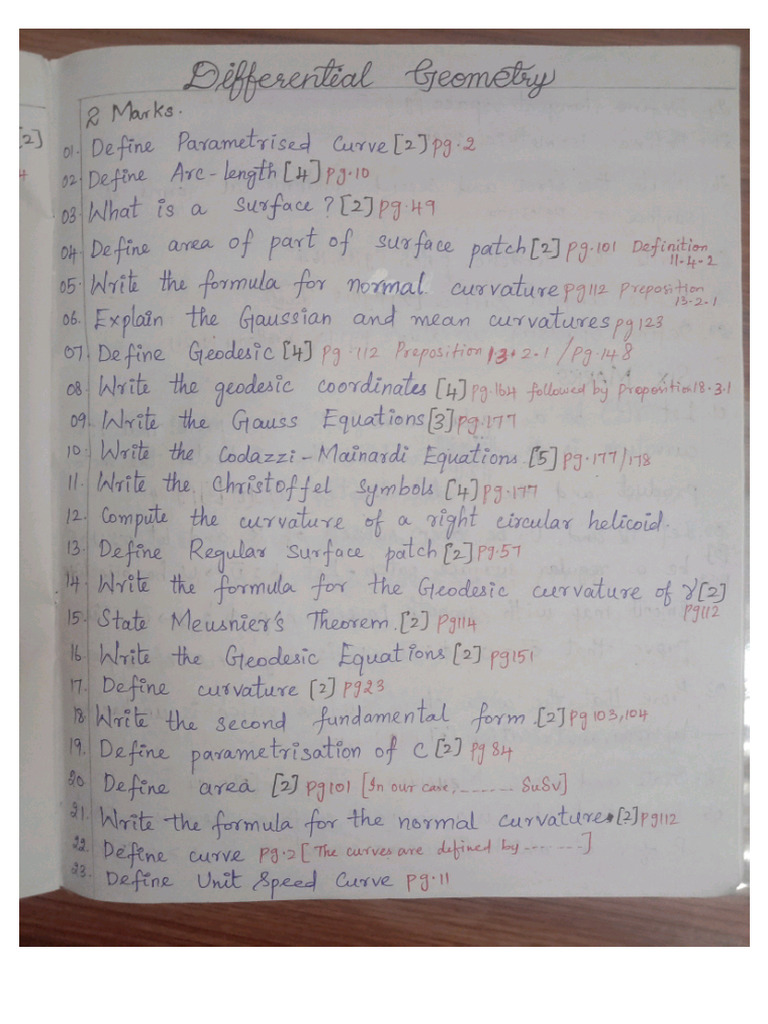 Differential Geometry
2 Marks.
2]
01. Define Parametrised Curve [2] pg.2
02. Define Arc-length [4] pg.10
03. What is a surface? [2] pg.49
04. Define area of part of surface patch [2] pg.101 Definition
11.4.2
05. Write the formula for normal curvature pg112 Preposition
13.2.1
06. Explain the Gaussian and mean curvatures pg123
07. Define Geodesic [4] pg.112 Preposition 13.2.1 / pg.148
08. Write the geodesic coordinates [4] pg.164 followed by proposition 18.3.1
09. Write the Gauss Equations [3] pg.177
10. Write the Codazzi-Mainardi Equations [5] pg.177/178
11. Write the Christoffel symbols [4] pg.177
12. Compute the curvature of a right circular helicoid.
13. Define Regular Surface patch [2] pg.57
14. Write the formula for the Geodesic curvature of γ [2]
pg112
15. State Meusnier's Theorem. [2] pg114
16. Write the Geodesic Equations [2] pg151
17. Define curvature [2] pg23
18. Write the second fundamental form. [2] pg 103,104
19. Define parametrisation of C [2] pg 84
20. Define area [2] pg101 [In our case,....... SuSv]
21. Write the formula for the normal curvature. [2] pg112
22. Define curve pg.2 [The curves are defined by .......]
23. Define Unit Speed Curve pg.11